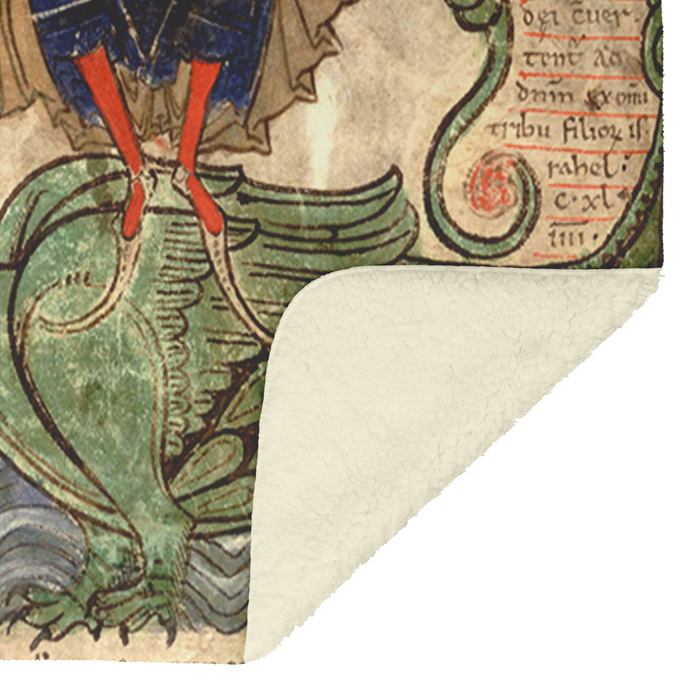 dei c̄uer·
tent᷎ ad
dnīm ex om̄i
tribu filioꝝ is
rahel·
c·xl
iiii·